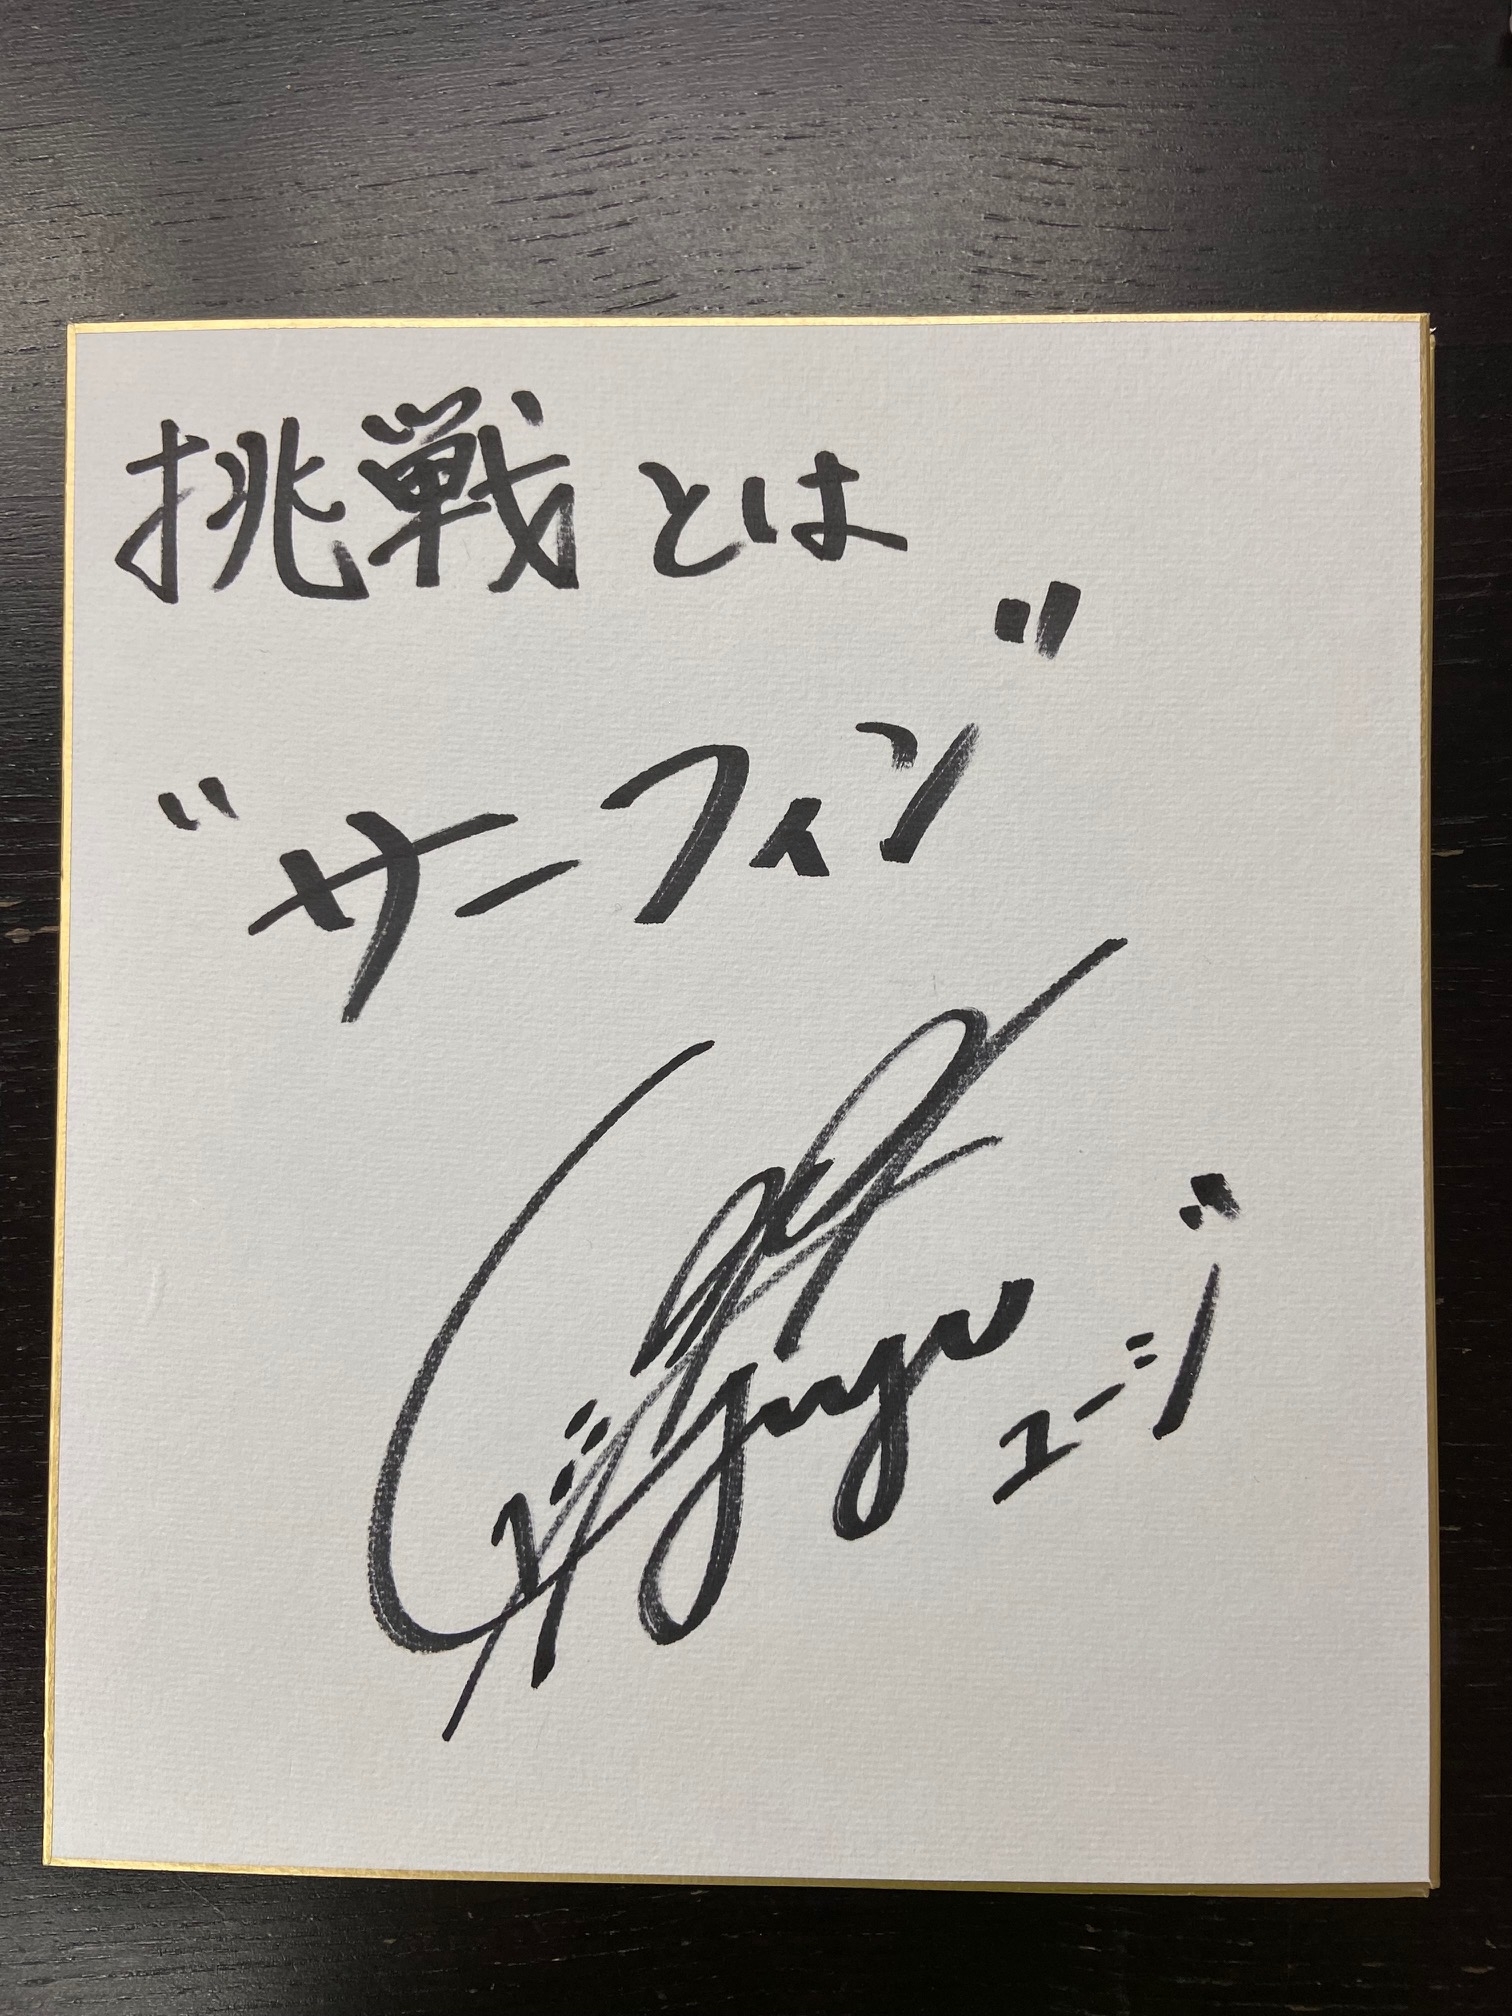 挑戦とは
"サーフィン"
ユージ